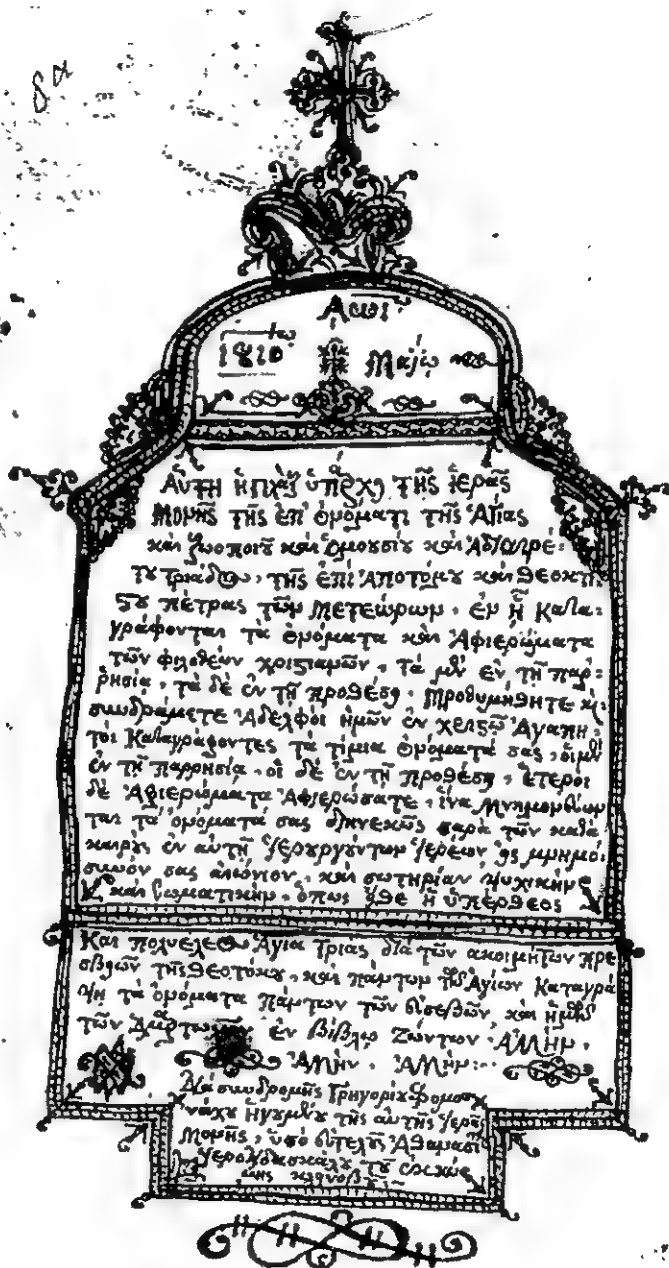 Αωιῳ
1810ῳ Μαΐῳ
Αὕτη ἡ πυξὶς ὑπάρχει τῆς ἱερᾶς
Μονῆς τῆς ἐπ' ὀνόματι τῆς Ἁγίας
καὶ ζωοποιοῦ καὶ ὁμοουσίου καὶ Ἀδιαιρέ:
του τριάδος, τῆς ἐπὶ Ἀποτόμου καὶ Θεοκτί
στου πέτρας τῶν Μετεώρων. ἐν ᾗ Κατα:
γράφονται τὰ ὀνόματα καὶ Ἀφιερώματα
τῶν φιλοθέων χριστιανῶν, τὰ μὲν ἐν τῇ παρ:
ρησίᾳ, τὰ δὲ ἐν τῇ προθέσει. Προθυμήθητε καὶ
συνδράμετε Ἀδελφοὶ ἡμῶν ἐν χριστῷ Ἀγαπη:
τοὶ Καταγράφοντες τὰ τίμια ὀνόματά σας, οἱ μὲν
ἐν τῇ παρρησίᾳ, οἱ δὲ ἐν τῇ προθέσει, ἕτεροι
δὲ Ἀφιερώματα Ἀφιερώσατε, ἵνα μνημονεύων
ται τὰ ὀνόματά σας διηνεκῶς παρὰ τῶν κατὰ
καιροὺς ἐν αὐτῇ ἱερουργούντων ἱερέων εἰς μνημό:
συνόν σας αἰώνιον, καὶ σωτηρίαν ψυχικήν
καὶ σωματικήν, ὅπως ἡ ὑπέρθεος
Καὶ πολυέλεος Ἁγία τριὰς διὰ τῶν ἀκοιμήτων πρε
σβειῶν τῆς Θεοτόκου, καὶ πάντων τῶν Ἁγίων Καταγρά
ψῃ τὰ ὀνόματα πάντων τῶν εὐσεβῶν, καὶ ἡμῶν
τῶν ἐν βίβλῳ Ζώντων ΑΜΗΝ.
ΑΜΗΝ. ΑΜΗΝ:
Διὰ συνδρομῆς Γρηγορίου
Ἡγουμένου τῆς αὐτῆς ἱερᾶς
Μονῆς, ὑπὸ εὐτελοῦς Ἀθανασίου
Ἱεροδιδασκάλου τοῦ